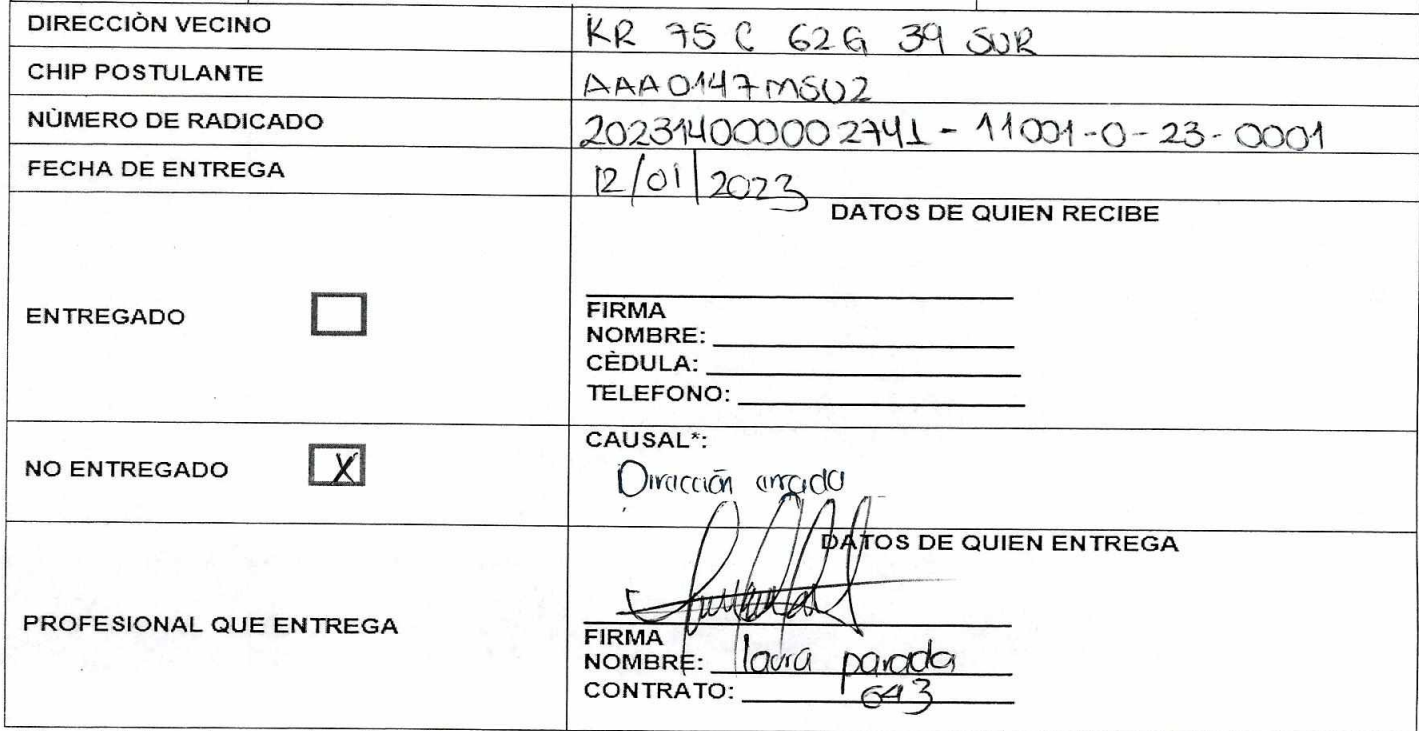 DIRECCIÒN VECINO KR 75 C 62G 39 SUR
CHIP POSTULANTE AAA0147MSUZ
NÙMERO DE RADICADO 202314000002741 - 11001-0-23-0001
FECHA DE ENTREGA 12/01/2023
DATOS DE QUIEN RECIBE
ENTREGADO
FIRMA
NOMBRE:
CÈDULA:
TELEFONO:
NO ENTREGADO X
CAUSAL*:
Dirección errada
DATOS DE QUIEN ENTREGA
PROFESIONAL QUE ENTREGA
FIRMA
NOMBRE: laura parada
CONTRATO: 643